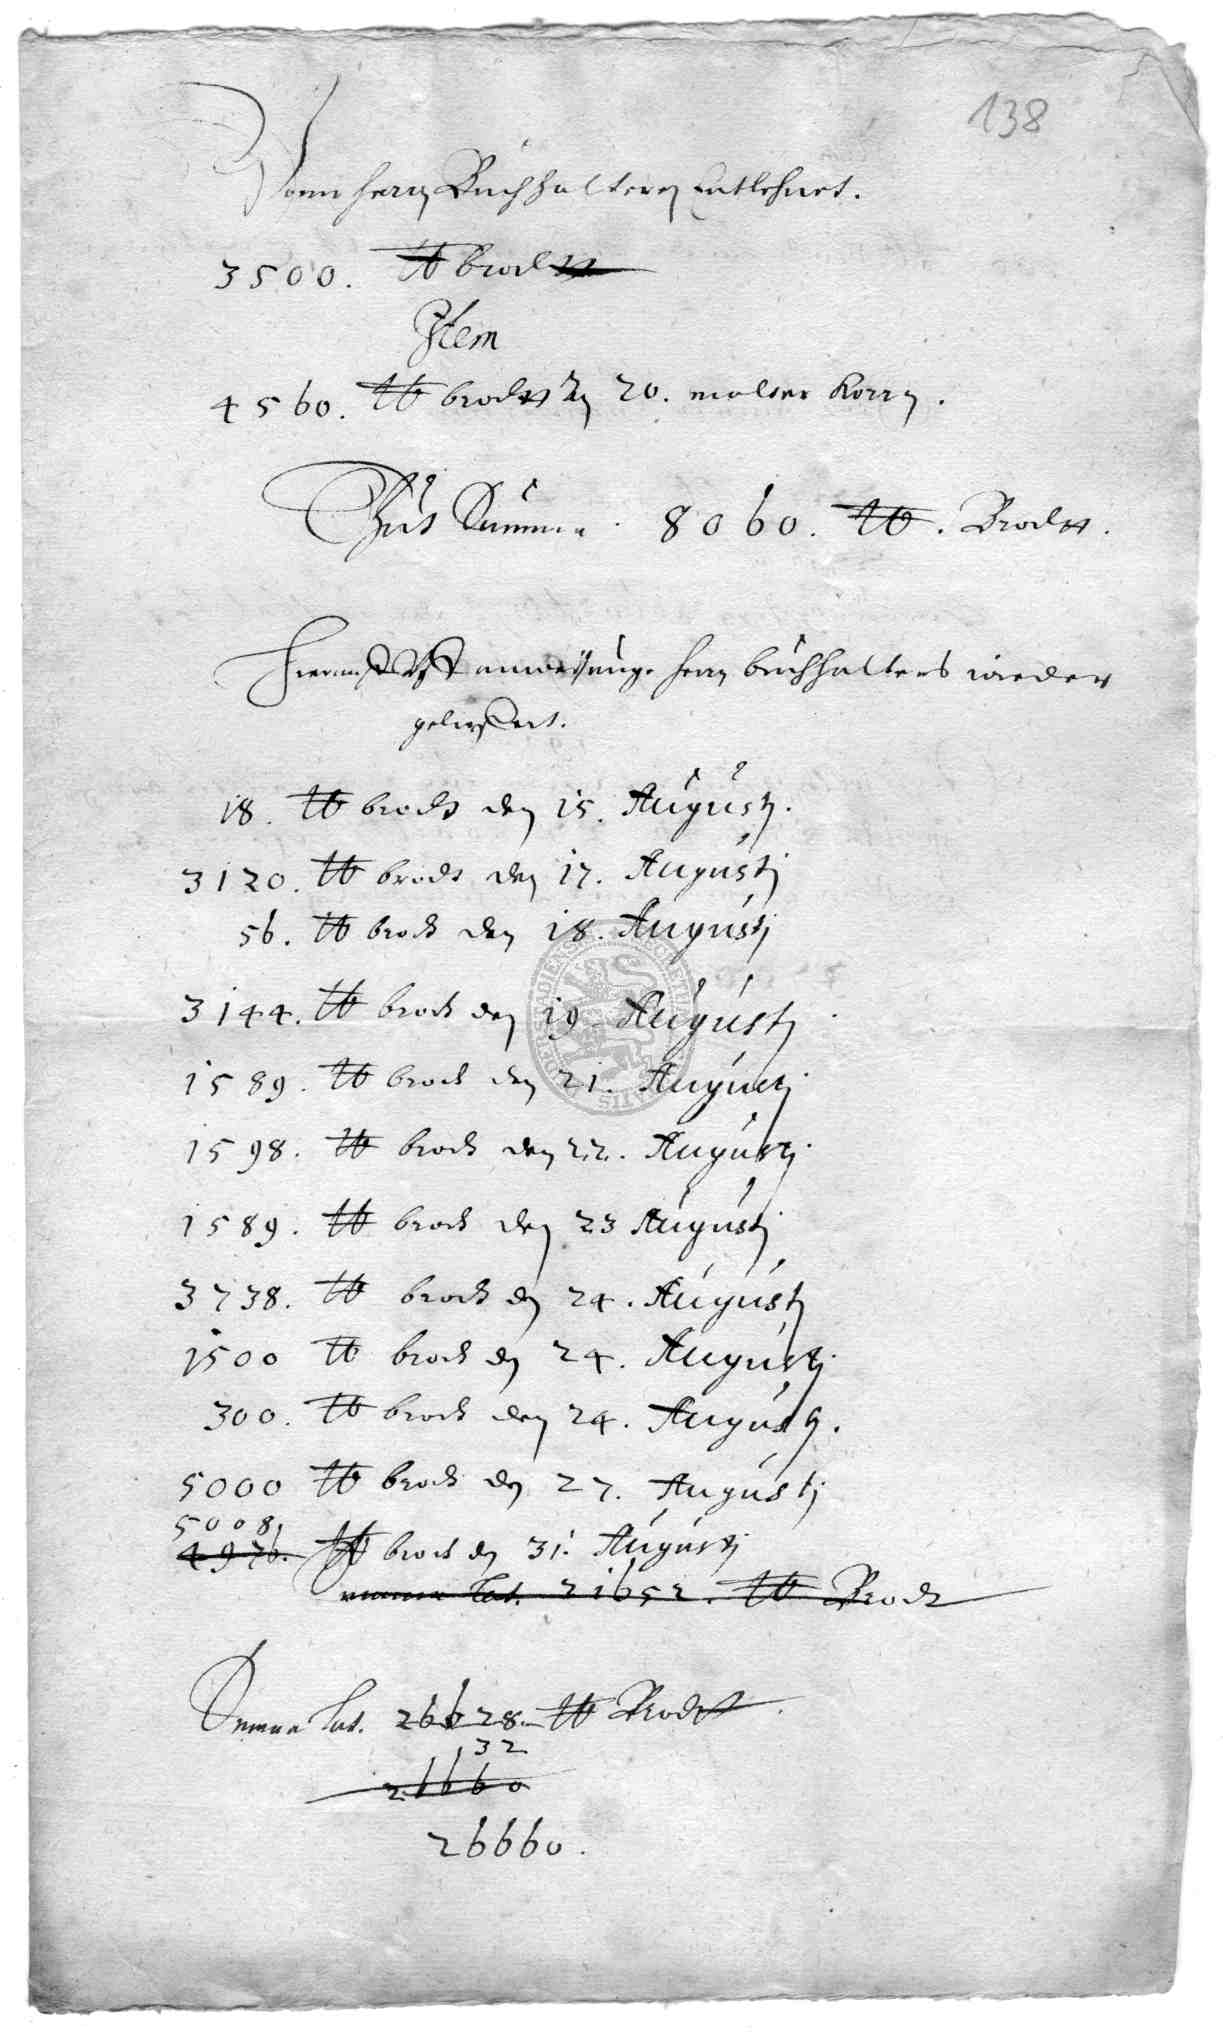 138
Vonn herrn Buchhalteren Entlehnet.
3500. ℔ brodtt
Item
4560. ℔ brodtt 20. malter Korn.
Thut Summa 8060. ℔. Brodtt.
Hierauff anweisunge herrn buchhalters wieder
geliefert.
18. ℔ brodt den 15. Augusti.
3120. ℔ brodt den 17. Augustj
56. ℔ brodt den 18. Augustj
3144. ℔ brodt den 19 Augustj
1589. ℔ brodt den 21. Augustj
1598. ℔ brodt den 22. Augustj.
1589. ℔ brodt den 23 Augustj
3738. ℔ brodt den 24. Augustj
1500 ℔ brodt den 24. Augustj
300. ℔ brodt den 24. Augustj.
5000 ℔ brodt den 27. Augustj
5008
4976. ℔ brodt den 31. Augustj
Lat. 21652. ℔ Brodt
Summa Lat. 26628. ℔ Brodtt
32
21660
26660.